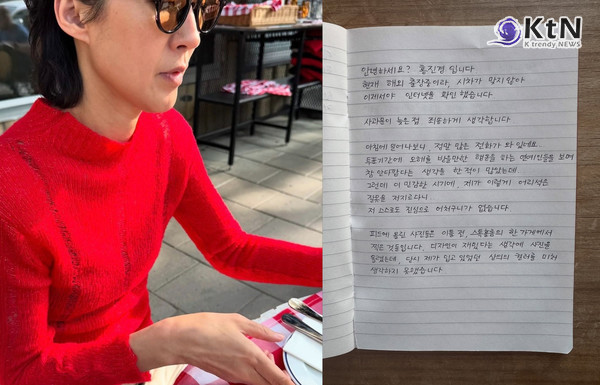 KtN
K trendy NEWS
안녕하세요? 홍진경 입니다
현재 해외 출장중이라 시차가 맞지 않아
이제서야 인터넷을 확인 했습니다.
사과문이 늦은점 죄송하게 생각합니다
아침에 일어나보니, 정말 많은 전화가 와 있네요.
투표기간에 오해를 받을만한 행동을 하는 연예인들을 보며
참 안타깝다는 생각을 한 적이 많았는데
그런데 이 민감한 시기에, 제가 이렇게 어리석은
잘못을 저지르다니..
저 스스로도 진심으로 어처구니가 없습니다.
피드에 올린 사진들은 이틀 전, 스톡홀름의 한 가게에서
찍은 것들입니다. 디자인이 재밌다는 생각에 사진을
올렸는데, 당시 제가 입고 있었던 상의의 컬러를 미처
생각하지 못했습니다.